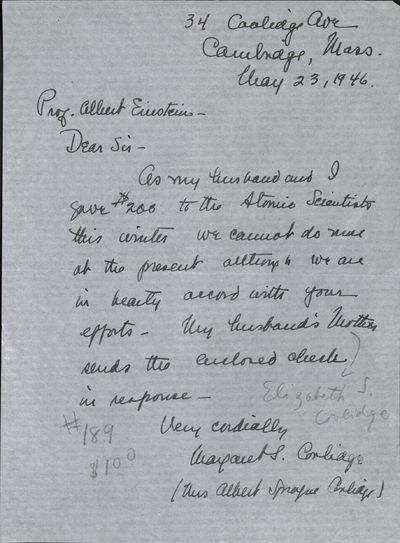 34 Coolidge Ave
Cambridge, Mass.
May 23, 1946.
Prof. Albert Einstein -
Dear Sir -
As my husband and I
gave $200 to the Atomic Scientists
this winter we cannot do more
at the present although we are
in hearty accord with your
efforts - My husband's Mother
sends the enclosed check
in response -
Elizabeth S.
Coolidge
#189
$100
Very cordially
Margaret S. Coolidge
(Mrs Albert Sprague Coolidge)